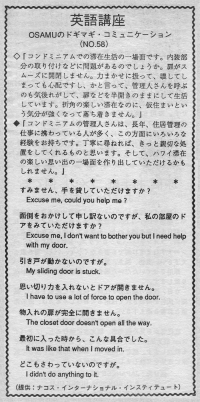 英語講座
OSAMUのドギマギ・コミュニケーション
(NO.58)
◇『コンドミニアムでの滞在生活の一場面です。内装部
分の取り付けなどに問題があるのでしょうか。扉がス
ムーズに開閉しません。力まかせに扱って、壊してし
まっても心配ですし、かと言って、管理人さんを呼ぶ
のも気後れがして、扉などを半開きのままにして生活
しています。折角の楽しい滞在なのに、仮住まいとい
う気分が強くなって落ち着きません』
◆『コンドミニアムの管理人さんは、長年、住居管理の
仕事に携わっている人が多く、この方面にいろいろな
経験をお持ちです。丁寧に尋ねれば、きっと親切な処
置をしてくれるものと思います。そして、ハワイ滞在
の楽しい思い出の一場面を作り出していただけるかも
しれません』
* * * * * * * *
すみません、手を貸していただけますか？
Excuse me, could you help me ?
面倒をおかけして申し訳ないのですが、私の部屋のド
アをみていただけますか？
Excuse me, I don't want to bother you but I need help
with my door.
引き戸が動かないのですが。
My sliding door is stuck.
思い切り力を入れないとドアが開きません。
I have to use a lot of force to open the door.
物入れの扉が完全に開きません。
The closet door doesn't open all the way.
最初に入った時から、こんな具合でした。
It was like that when I moved in.
どこもさわっていないのですが。
I didn't do anything to it.
(提供：ナコス・インターナショナル・インスティテュート)